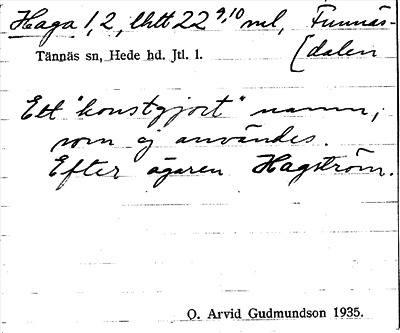 Haga 1,2, lhtt 22 9,10 ml, Funnäs-
[dalen
Tännäs sn, Hede hd. Jtl. l.
Ett "konstgjort" namn,
som ej användes.
Efter ägaren Hagström.
O. Arvid Gudmundson 1935.